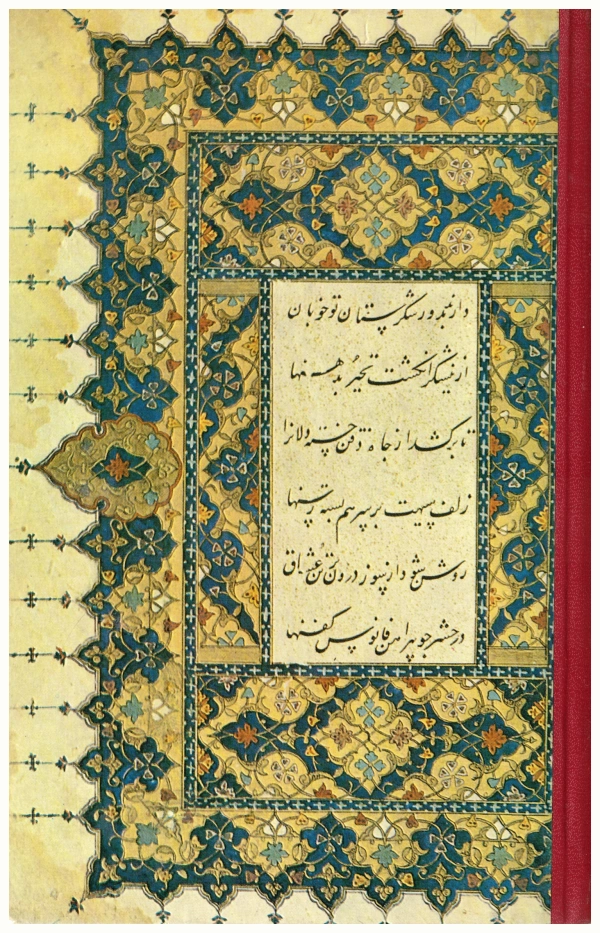 دارند بدور شکرستان تو خوبان
از نیشکر انگشت تحیر بدهنها
تا برکشد از چاه ذقن خسته دلانرا
زلف سیهت بر سر هم بسته رسنها
روشن شود از سوز درون عشاق
در حشر چو پیراهن فانوس کفنها